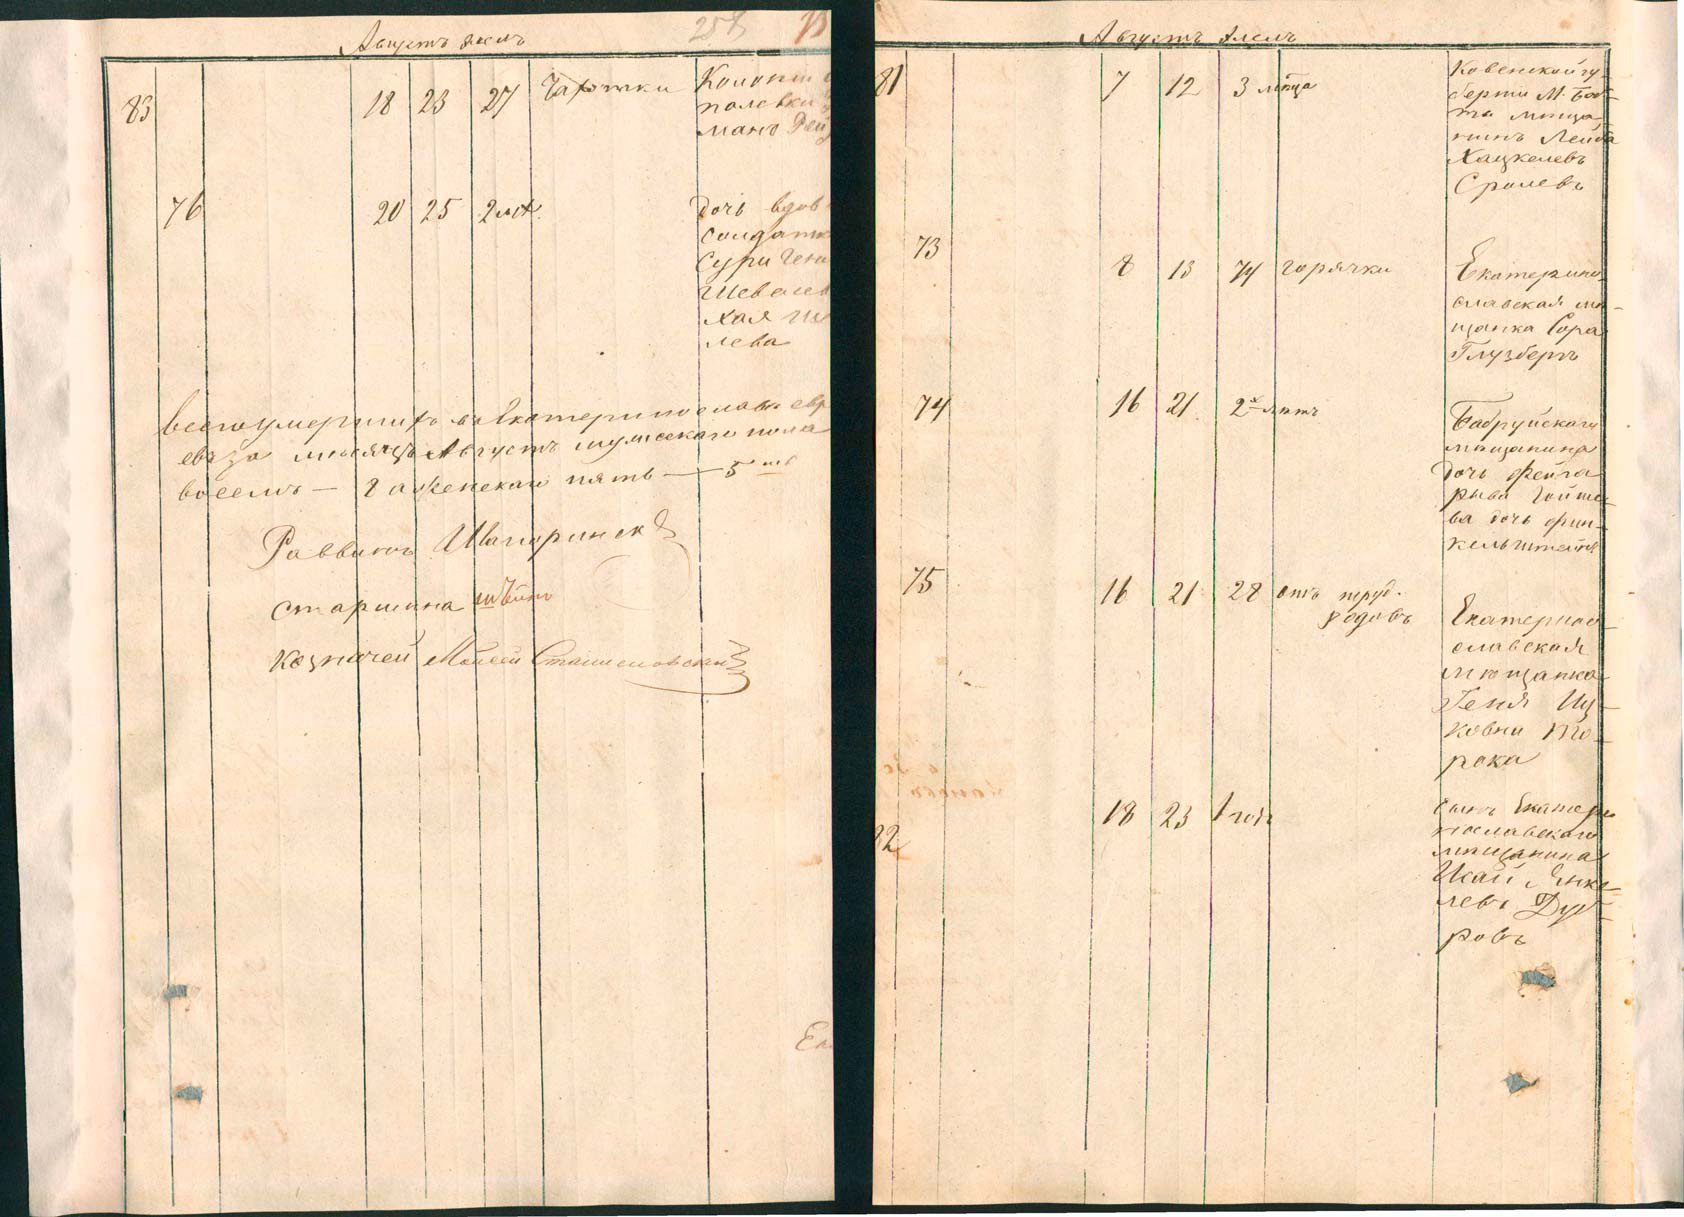 258
Августъ элелъ
83 18 23 27 Чахотки Колони
полевки
манъ Рей
76 20 25 2 лет. дочь вдов
солдатк
Суры Гени
Шевелев
хая
лева
Всего умершихъ въ Екатеринославе евр
евъ за месяцъ Августъ мужескаго пола
восемъ — 8 а женскаго пять — 5
Раввинъ Шапоринск
старшина
казначей Мойсей Станиславскій
Августъ Элелъ
81 7 12 3 мѣсца Ковенской гу-
берніи М.
та мѣща
нинъ Лейба
Хацкелевъ
Сролевъ
73 8 13 74 горячки Екатерино-
славская мѣ-
щанка Сора
Глузбергъ
74 16 21 2х лѣтъ Бабруйскаго
мѣщанина
дочь Фейга
рыва
ва дочь Фин-
кельштейнъ
75 16 21 28 отъ труд.
родовъ Екатерино-
славская
мѣщанка
Геня Иц-
ковна
рока
82 18 23 1 годъ сынъ Екатери
нославскаго
мѣщанина
Шкай Янке-
левъ Дуб-
ровъ